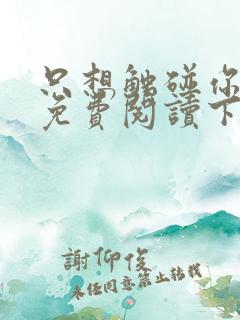 只想触碰你
免費閱讀下
謝仰俊
未任同意禁止转载